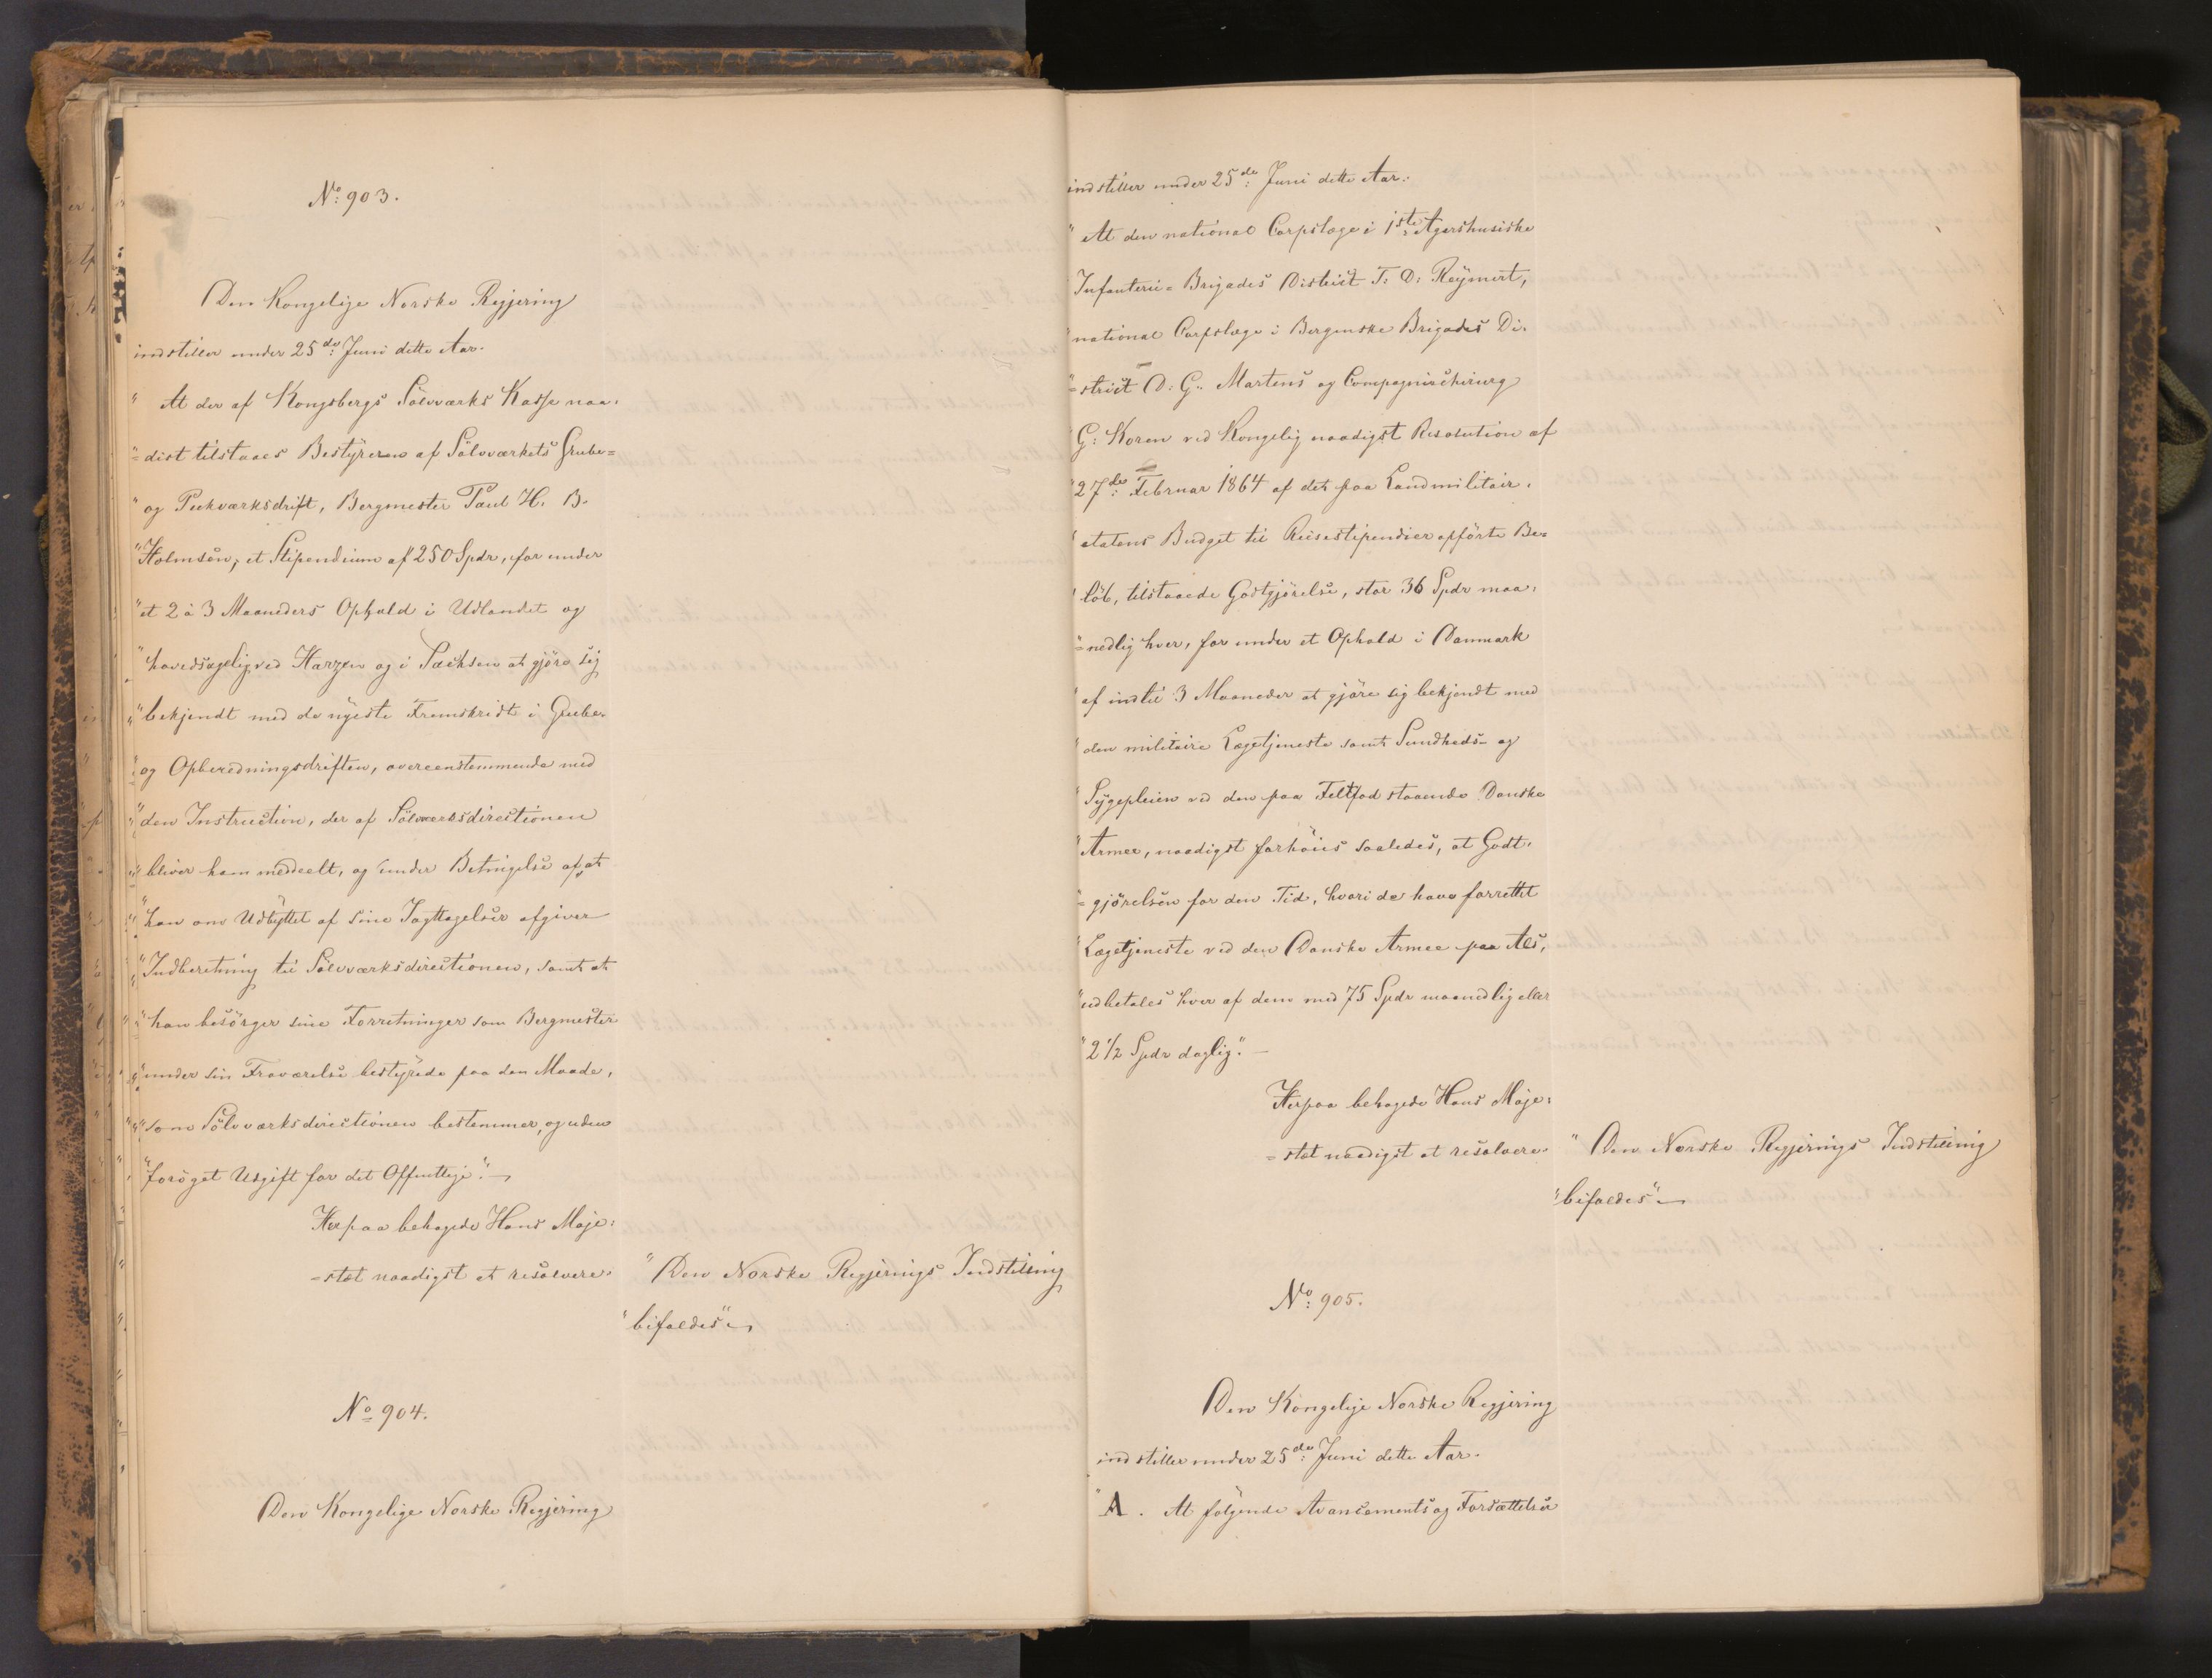 No: 903.
Den Kongelige Norske Regjering
indstiller under 25de: Juni dette Aar.
" At der af Kongsbergs Sölvværks Kasse naa-
"=digst tilstaaes Bestyreren af Sölvværkets Grube=
" og Pukværksdrift, Bergmester Paul H. B.
"Holmsen, et Stipendium af 250 Spdr, for under
"et 2 à 3 Maaneders Ophold i Udlandet og
"hovedsagelig ved Harzen og i Sachsen at gjöre sig
"bekjendt med de nyeste Fremskridt i Grube-
"og Opberedningsdriften, overeenstemmende med
"den Instruction, der af Sölvværksdirectionen
"bliver ham meddeelt, og under Betingelse af, at
"han om Udbyttet af sine Iagttagelser afgiver
"Indberetning til Sölvværksdirectionen, samt at
"han besörger sine Forretninger som Bergmester
"under sin Fraværelse bestyrede paa den Maade,
"som Sölvværksdirectionen bestemmer, og uden
"foröget Udgift for det Offentlige".
Herpaa behagede Hans Maje:
=stæt naadigst at resolvere.
"Den Norske Regjerings Indstilling
"bifaldes"
No 904.
Den Kongelige Norske Regjering
indstiller under 25de: Juni dette Aar:
" At den national Corpslæge i 1ste: Agershusiske
"Infanterie=Brigades District T: D: Reymert,
"national Corpslæge i Bergenske Brigades Di-
"=strict D: G: Martens og Compagniechirurg
"G: Koren ved Kongelig naadigst Resolution af
"27de: Februar 1864 af det paa Landmilitair-
"etatens Budget til Reisestipendier opförte Be=
"löb, tilstaaede Godtgjörelse, stor 36 Spdr maa-
"=nedlig hver, for under et Ophold i Danmark
"af indtil 3 Maaneder at gjöre sig bekjendt med
"den militaire Lægetjeneste samt Sundheds- og
"Sygepleien ved den paa Feltfod staaende Danske
"Armee, naadigst forhöies saaledes, at Godt-
"=gjörelsen for den Tid, hvori de have forrettet
"Lægetjeneste ved den Danske Armee paa Als,
"udbetales hver af dem med 75 Spdr maanedlig eller
"2 1/2 Spdr daglig".
Herpaa behagede Hans Maje:
=stæt naadigst at resolvere.
"Den Norske Regjerings Indstilling
"bifaldes"
No: 905.
Den Kongelige Norske Regjering
indstiller under 25de: Juni dette Aar.
"A. At fölgende Avancements og Forsættelser